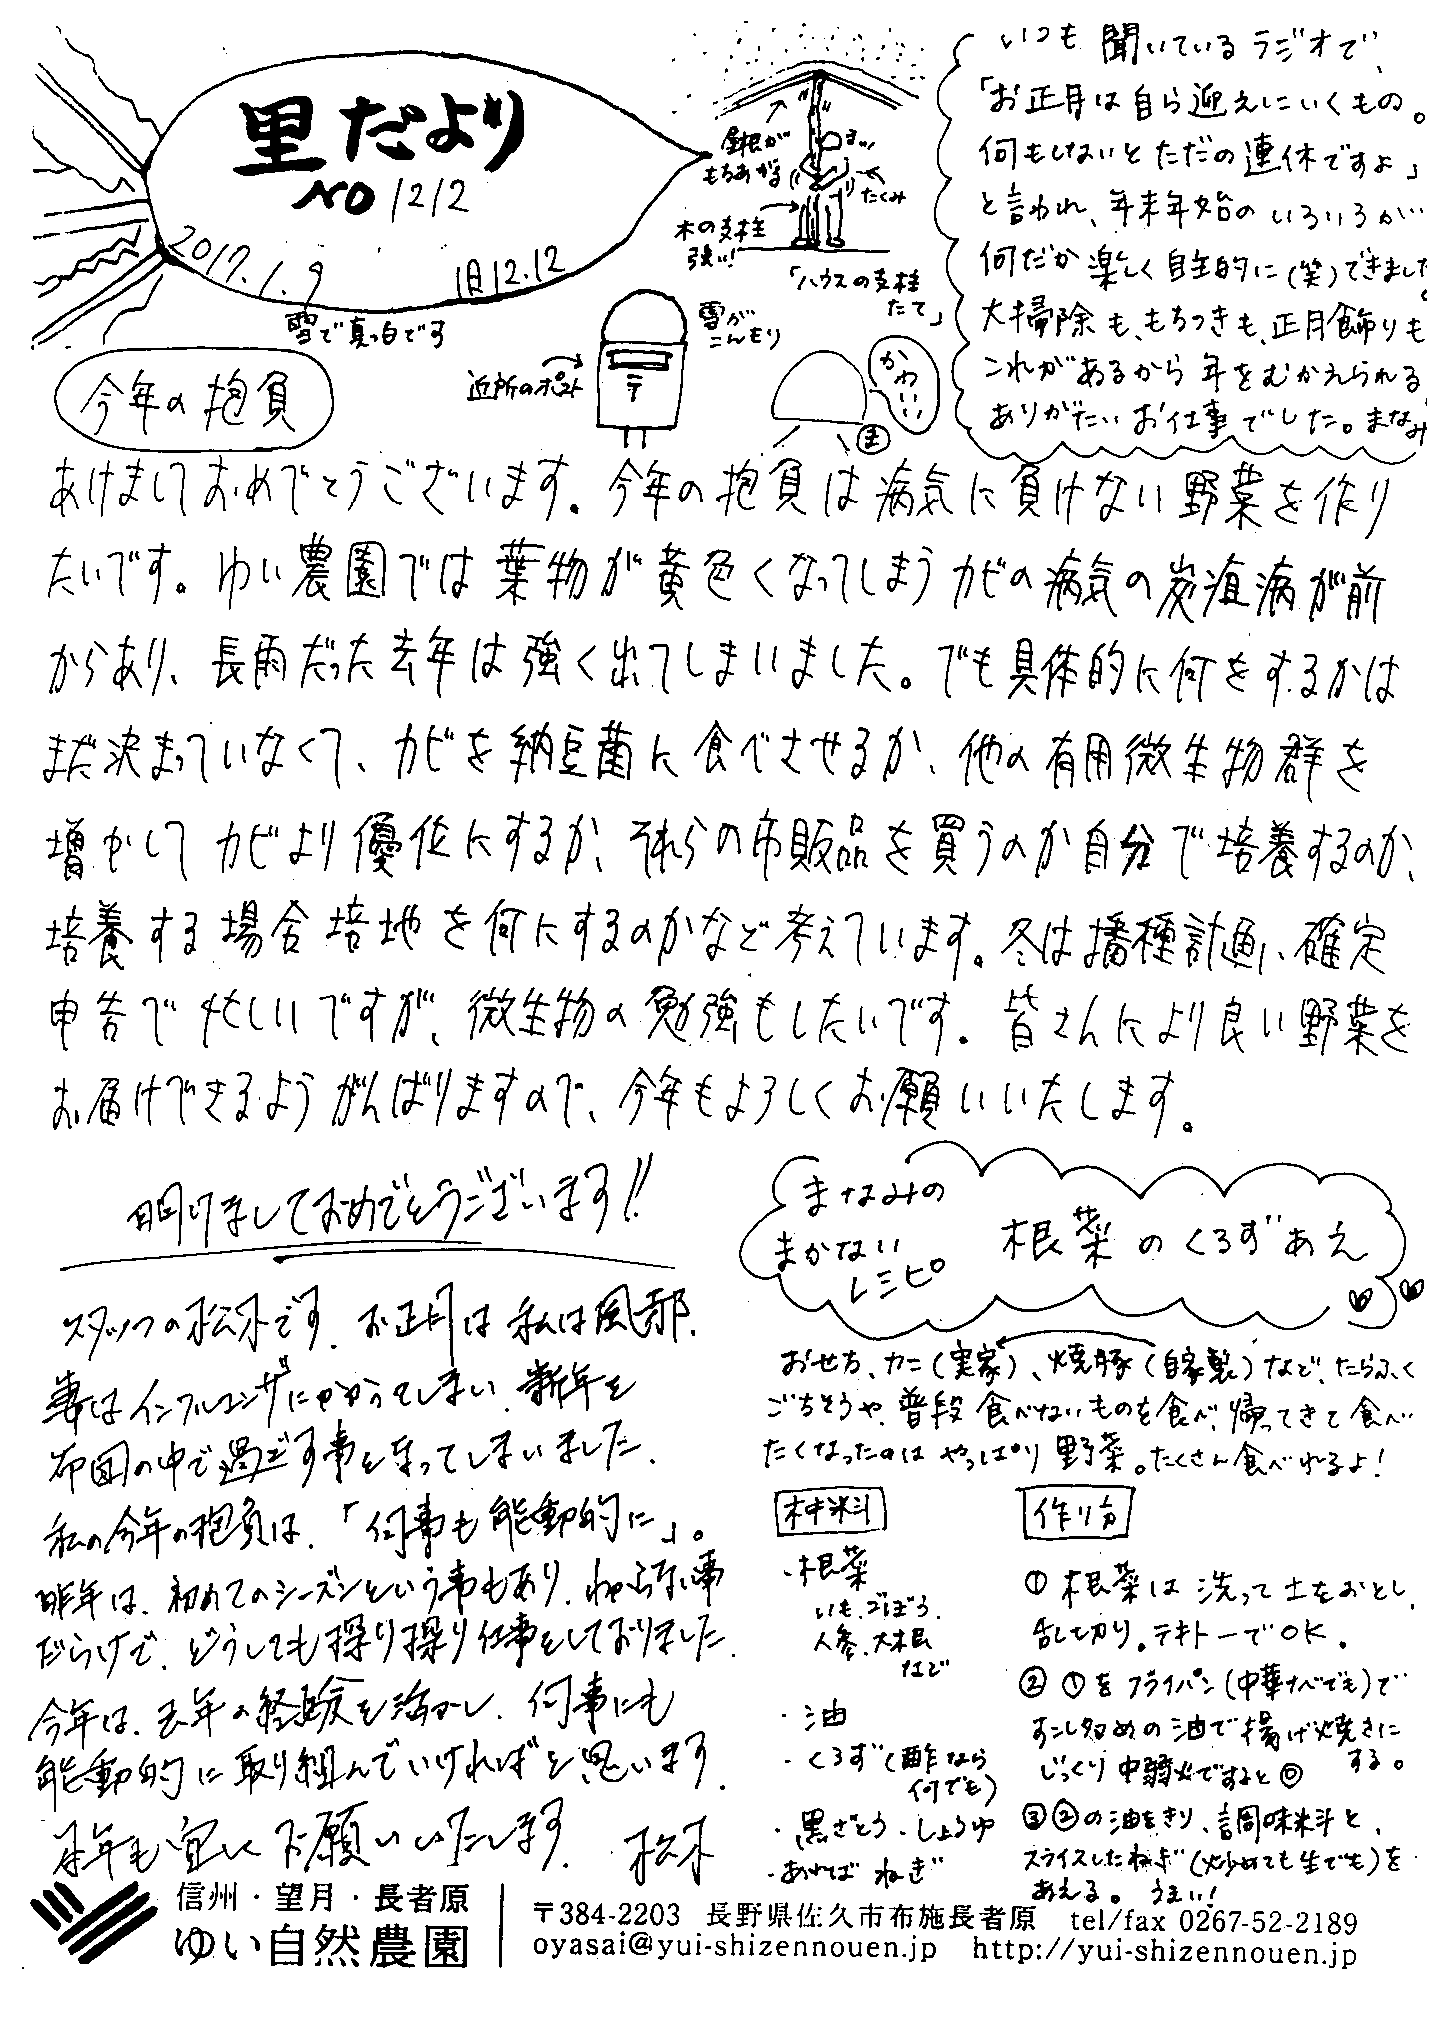 里だより
NO 1212
2017.1.9
旧12.12
雪で真っ白です
屋根が
もちあがる
たくみ
木の支柱
強い!
「ハウスの支柱
たて」
近所のポスト
雪が
こんもり
かわいい
ま
いつも聞いているラジオで、
「お正月は自ら迎えにいくもの。
何もしないとただの連休ですよ」
と言われ、年末年始のいろいろが
何だか楽しく自主的に(笑)できました。
大掃除も、もちつきも、正月飾りも
これがあるから年をむかえられる、
ありがたいお仕事でした。まなみ
今年の抱負
あけましておめでとうございます。今年の抱負は病気に負けない野菜を作り
たいです。ゆい農園では葉物が黄色くなってしまうカビの病気の炭疽病が前
からあり、長雨だった去年は強く出てしまいました。でも具体的に何をするかは
まだ決まっていなくて、カビを納豆菌に食べさせるか、他の有用微生物群を
増やしてカビより優位にするか、それらの市販品を買うのか自分で培養するのか、
培養する場合培地を何にするのかなど考えています。冬は播種計画、確定
申告で忙しいですが、微生物の勉強もしたいです。皆さんにより良い野菜を
お届けできるようがんばりますので、今年もよろしくお願いいたします。
明けましておめでとうございます!!
スタッフの松木です。お正月は私は風邪、
妻はインフルエンザにかかってしまい、新年を
布団の中で過ごす事となってしまいました。
私の今年の抱負は、「何事も能動的に」。
昨年は、初めてのシーズンという事もあり、わからない事
だらけで、どうしても探り探り仕事をしておりました。
今年は、去年の経験を活かし、何事にも
能動的に取り組んでいければと思います。
本年も宜しくお願いいたします。 松木
まなみの
まかない
レシピ
根菜のくろずあえ
おせち、カニ(実家)、焼豚(自家製)など、たらふく
ごちそうや、普段食べないものを食べ、帰ってきて食べ
たくなったのはやっぱり野菜。たくさん食べれるよ!
材料
・根菜
いも、ごぼう、
人参、大根
など
・油
・くろず(酢なら
何でも)
・黒ざとう・しょうゆ
・あればねぎ
作り方
① 根菜は洗って土をおとし、
乱切り。テキトーでOK。
② ①をフライパン(中華なべでも)で
すこし多めの油で揚げ焼きに
する。
じっくり中弱火ですると◎
③ ②の油をきり、調味料と、
スライスしたねぎ(炒めても生でも)を
あえる。うまい!
信州・望月・長者原
ゆい自然農園
〒384-2203 長野県佐久市布施長者原 tel/fax 0267-52-2189
oyasai@yui-shizennouen.jp http://yui-shizennouen.jp